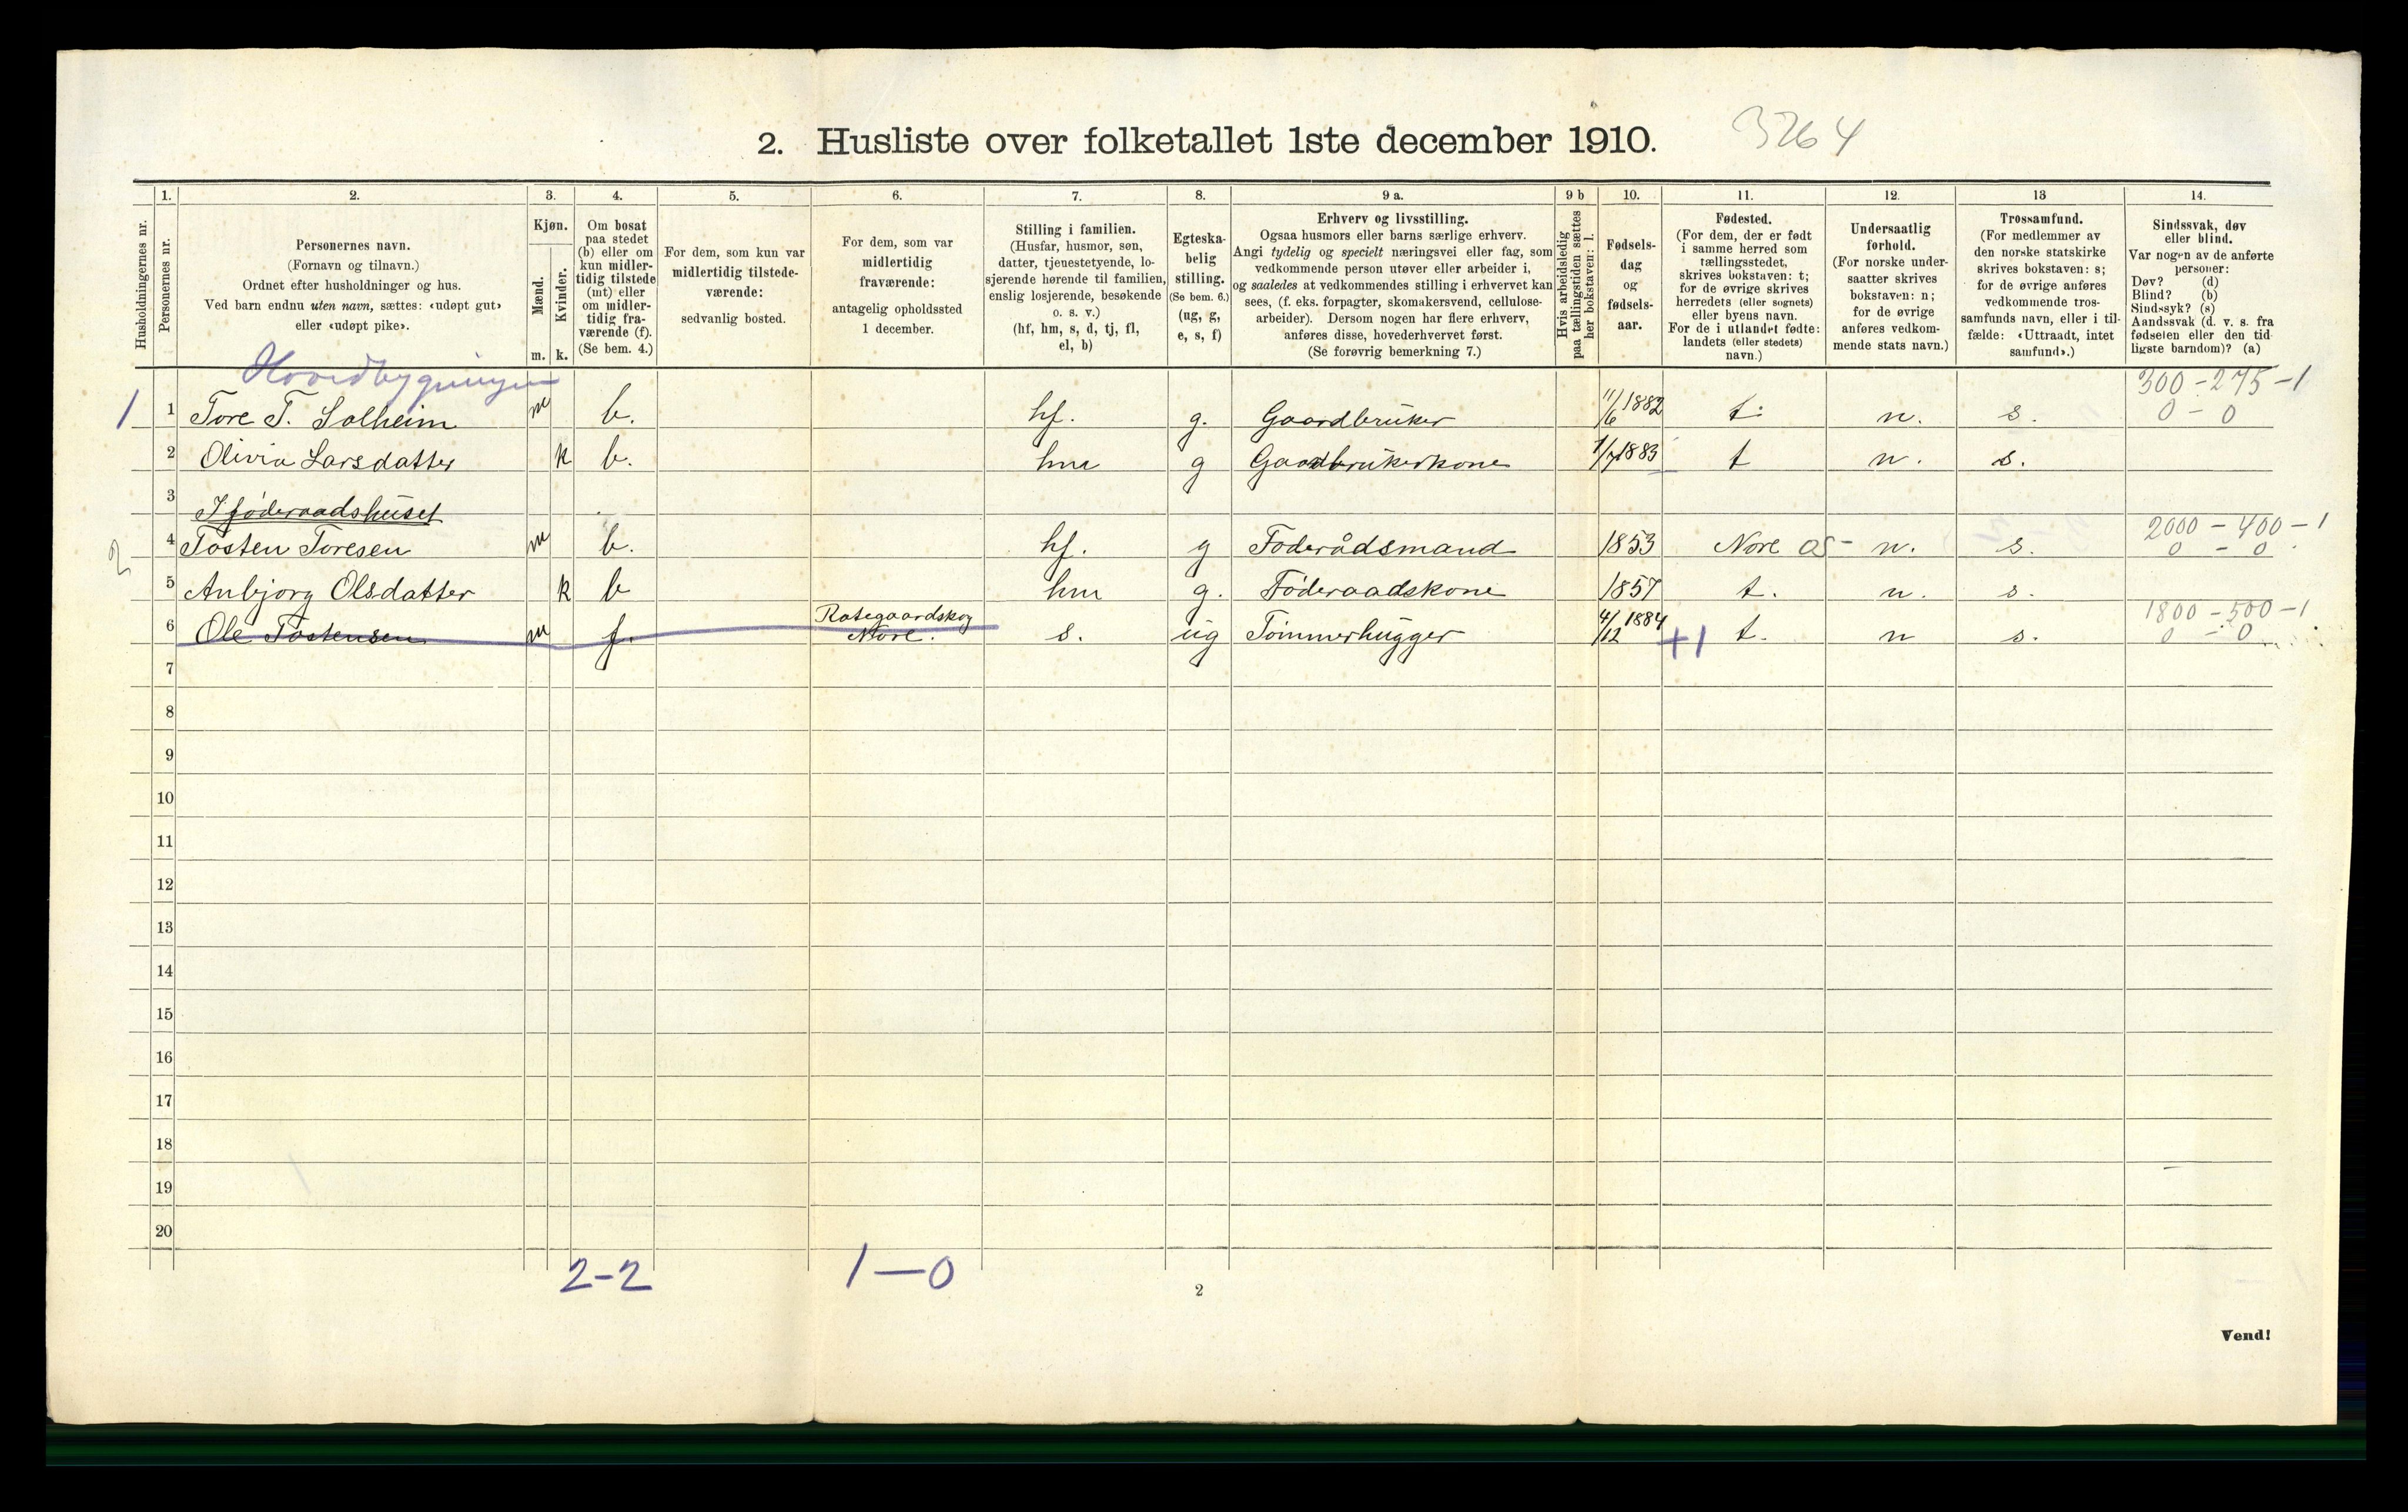 2. Husliste over folketallet 1ste december 1910. 3264
Husholdningernes nr.
1. Personernes nr.
2. Personernes navn.
(Fornavn og tilnavn.)
Ordnet efter husholdninger og hus.
Ved barn endnu uten navn, sættes: «udøpt gut»
eller «udøpt pike».
3. Kjøn.
Mænd. m.
Kvinder. k.
4. Om bosat
paa stedet
(b) eller om
kun midler-
tidig tilstede
(mt) eller
om midler-
tidig fra-
værende (f).
(Se bem. 4.)
5. For dem, som kun var
midlertidig tilstede-
værende:
sedvanlig bosted.
6. For dem, som var
midlertidig
fraværende:
antagelig opholdssted
1 december.
7. Stilling i familien.
(Husfar, husmor, søn,
datter, tjenestetyende, lo-
sjerende hørende til familien,
enslig losjerende, besøkende
o. s. v.)
(hf, hm, s, d, tj, fl,
el, b)
8. Egteska-
belig
stilling.
(Se bem. 6.)
(ug, g,
e, s, f)
9 a. Erhverv og livsstilling.
Ogsaa husmors eller barns særlige erhverv.
Angi tydelig og specielt næringsvei eller fag, som
vedkommende person utøver eller arbeider i,
og saaledes at vedkommendes stilling i erhvervet kan
sees, (f. eks. forpagter, skomakersvend, cellulose-
arbeider). Dersom nogen har flere erhverv,
anføres disse, hovederhvervet først.
(Se forøvrig bemerkning 7.)
9 b Hvis arbeidsledig
paa tællingstiden sættes
her bokstaven: l.
10. Fødsels-
dag
og
fødsels-
aar.
11. Fødested.
(For dem, der er født
i samme herred som
tællingsstedet,
skrives bokstaven: t;
for de øvrige skrives
herredets (eller sognets)
eller byens navn.
For de i utlandet fødte:
landets (eller stedets)
navn.)
12. Undersaatlig
forhold.
(For norske under-
saatter skrives
bokstaven: n;
for de øvrige
anføres vedkom-
mende stats navn.)
13 Trossamfund.
(For medlemmer av
den norske statskirke
skrives bokstaven: s;
for de øvrige anføres
vedkommende tros-
samfunds navn, eller i til-
fælde: «Uttraadt, intet
samfund».)
14. Sindssvak, døv
eller blind.
Var nogen av de anførte
personer:
Døv? (d)
Blind? (b)
Sindssyk? (s)
Aandssvak (d. v. s. fra
fødselen eller den tid-
ligste barndom)? (a)
Hovedbygningen 300-275-1
1 1 Tore T. Solheim m b. hf. g. Gaardbruker 11/6 1882 t. n. s. 0-0
2 Olivia Larsdatter k b. hm g Gaardbrukerkone 1/7 1883 t n. s.
3 I føderaadshuset
2000-400-1
2 4 Tosten Toresen m b. hf. g Føderådsmand 1853 Nore 05- n. s. 0-0
5 Anbjørg Olsdatter k b hm g. Føderaadskone 1857 t. n. s.
Rategaardskog 1800-500-1
6 Ole Tostensen m f. Nore. s. ug Tømmerhugger 4/12 1884 +1 t. n s. 0-0
7
8
9
10
11
12
13
14
15
16
17
18
19
20
2-2 1-0
2
Vend!